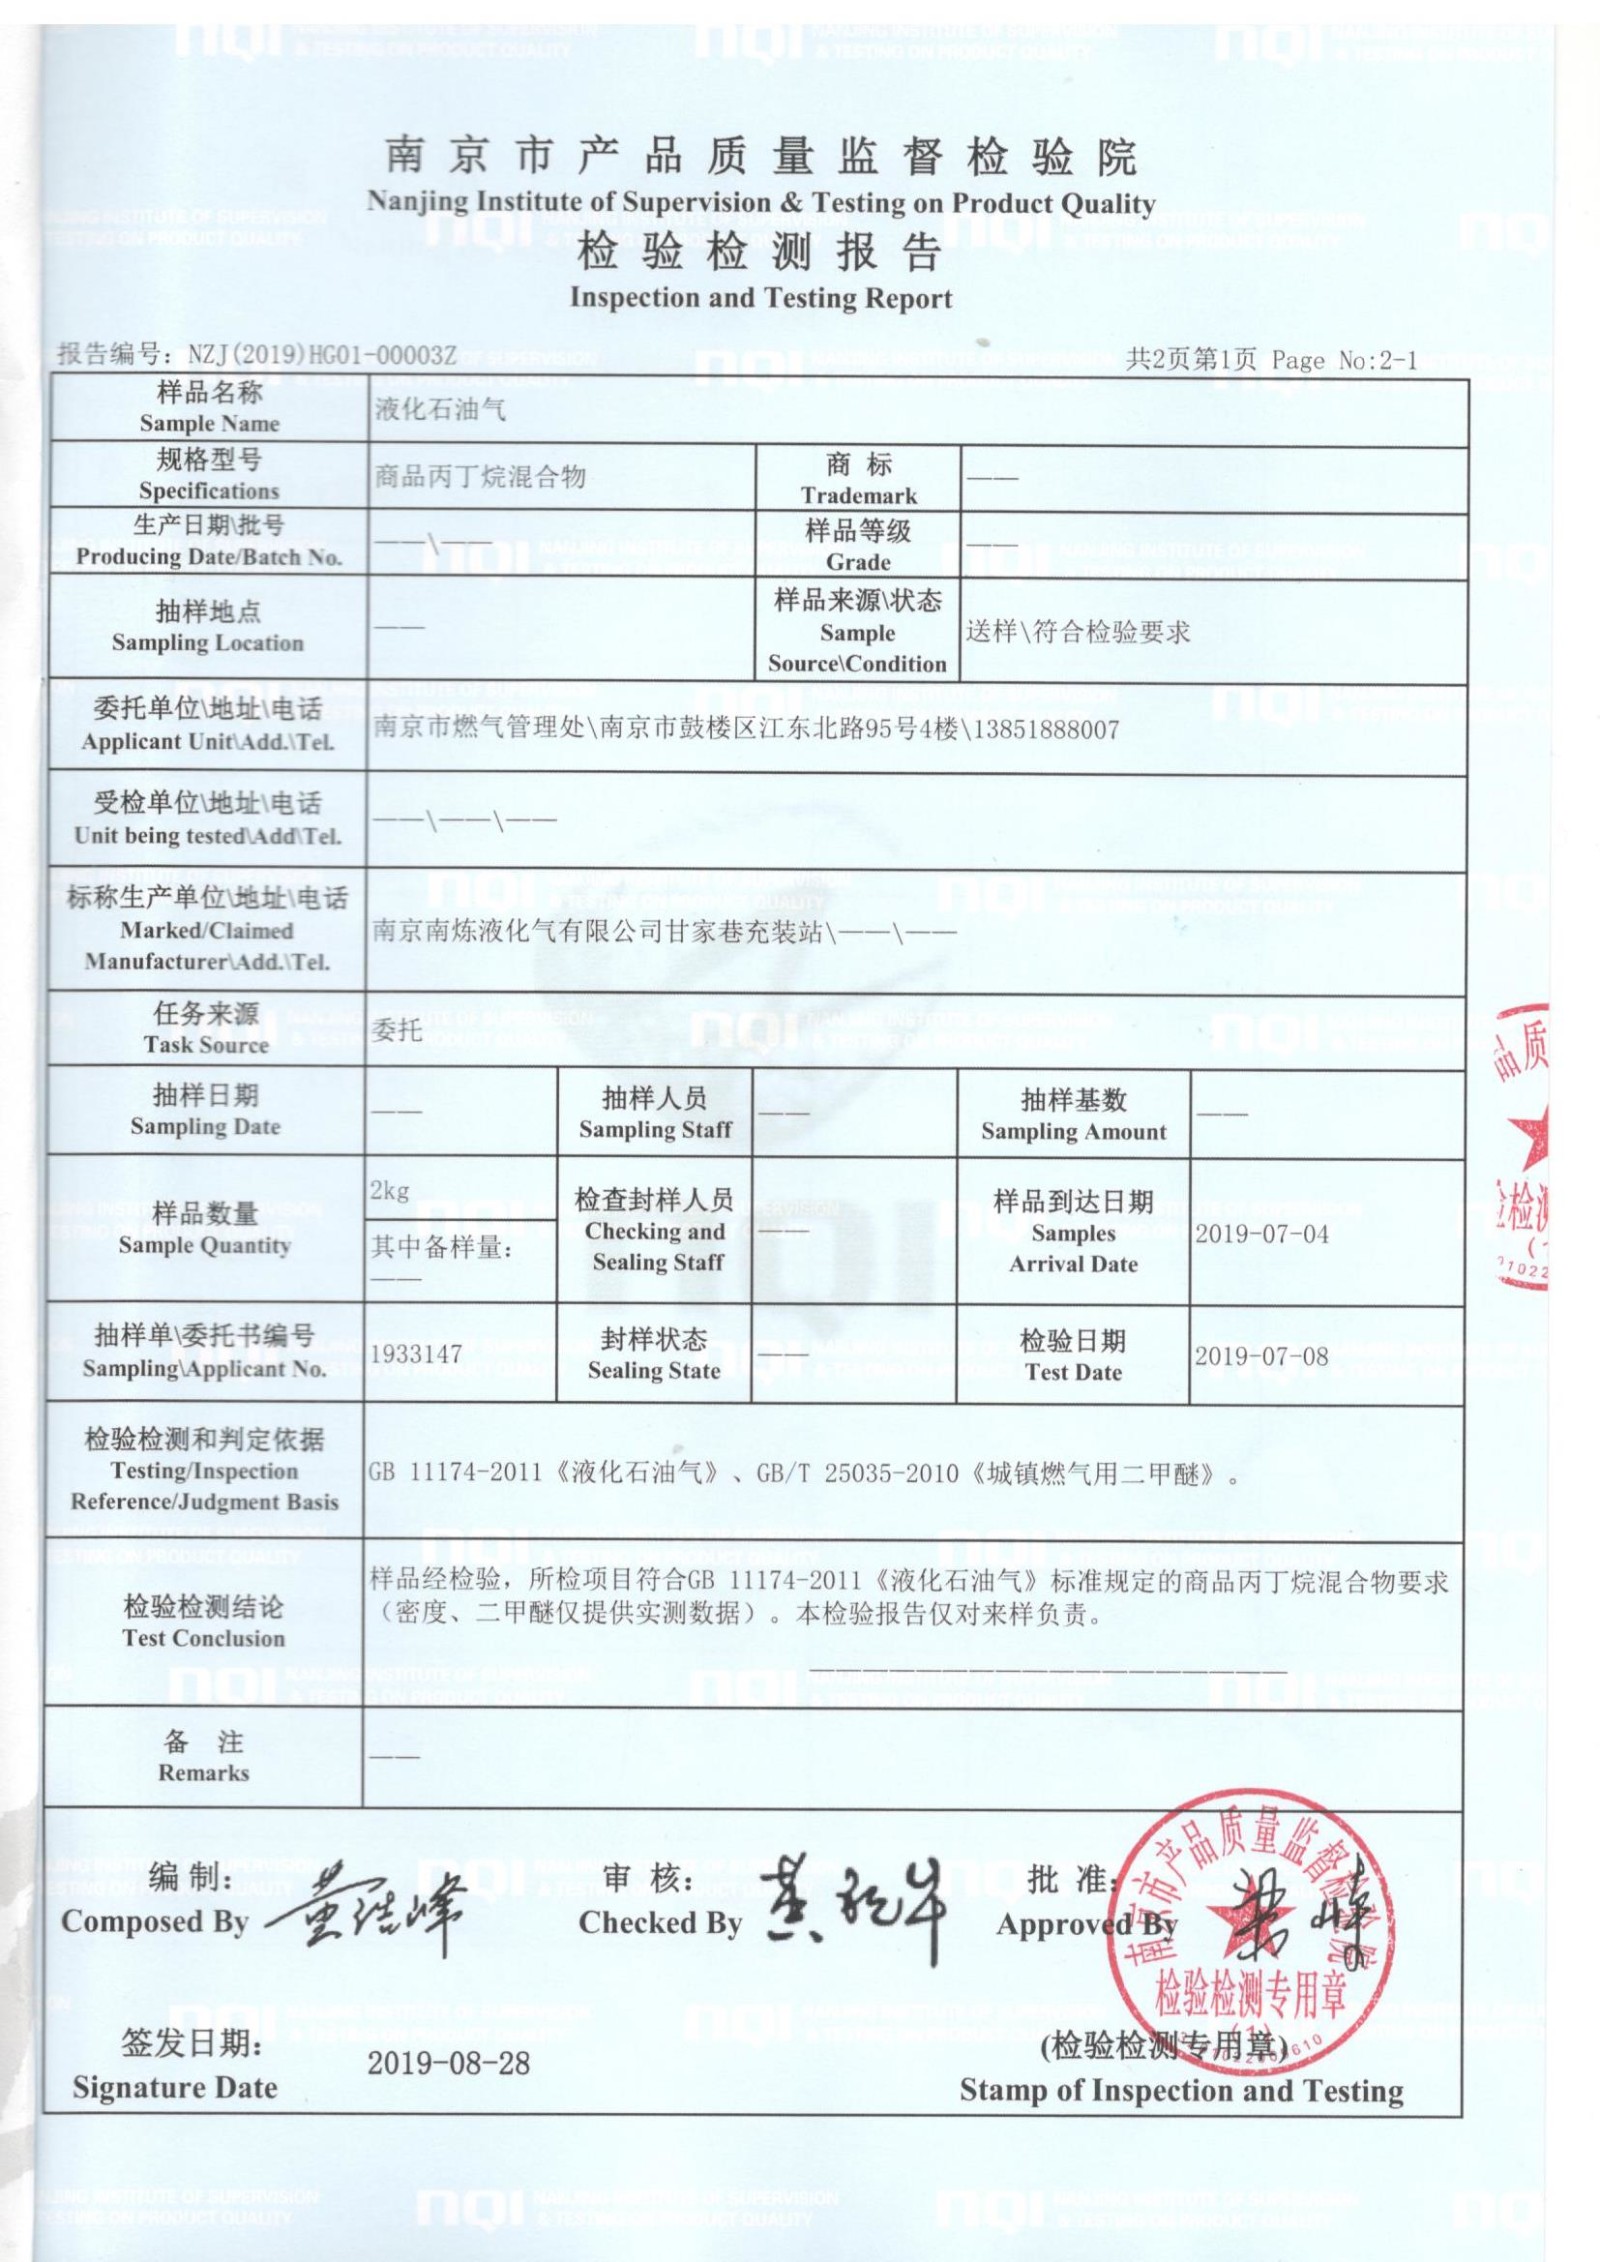 南京市产品质量监督检验院
Nanjing Institute of Supervision & Testing on Product Quality
检验检测报告
Inspection and Testing Report
报告编号：NZJ(2019)HG01-00003Z
共2页第1页 Page No:2-1
样品名称
Sample Name
液化石油气
规格型号
Specifications
商品丙丁烷混合物
商 标
Trademark
——
生产日期\批号
Producing Date/Batch No.
——\——
样品等级
Grade
——
抽样地点
Sampling Location
——
样品来源\状态
Sample
Source\Condition
送样\符合检验要求
委托单位\地址\电话
Applicant Unit\Add.\Tel.
南京市燃气管理处\南京市鼓楼区江东北路95号4楼\13851888007
受检单位\地址\电话
Unit being tested\Add\Tel.
——\——\——
标称生产单位\地址\电话
Marked/Claimed
Manufacturer\Add.\Tel.
南京南炼液化气有限公司甘家巷充装站\——\——
任务来源
Task Source
委托
抽样日期
Sampling Date
——
抽样人员
Sampling Staff
——
抽样基数
Sampling Amount
——
样品数量
Sample Quantity
2kg
其中备样量：
——
检查封样人员
Checking and
Sealing Staff
——
样品到达日期
Samples
Arrival Date
2019-07-04
抽样单\委托书编号
Sampling\Applicant No.
1933147
封样状态
Sealing State
——
检验日期
Test Date
2019-07-08
检验检测和判定依据
Testing/Inspection
Reference/Judgment Basis
GB 11174-2011《液化石油气》、GB/T 25035-2010《城镇燃气用二甲醚》。
检验检测结论
Test Conclusion
样品经检验，所检项目符合GB 11174-2011《液化石油气》标准规定的商品丙丁烷混合物要求
（密度、二甲醚仅提供实测数据）。本检验报告仅对来样负责。
备 注
Remarks
——
编 制：
Composed By
审 核：
Checked By
批 准：
Approved By
南京市产品质量监督检验院
检验检测专用章
(1)
签发日期：
Signature Date
2019-08-28
(检验检测专用章)
Stamp of Inspection and Testing
nqi
NANJING INSTITUTE OF SUPERVISION
& TESTING ON PRODUCT QUALITY